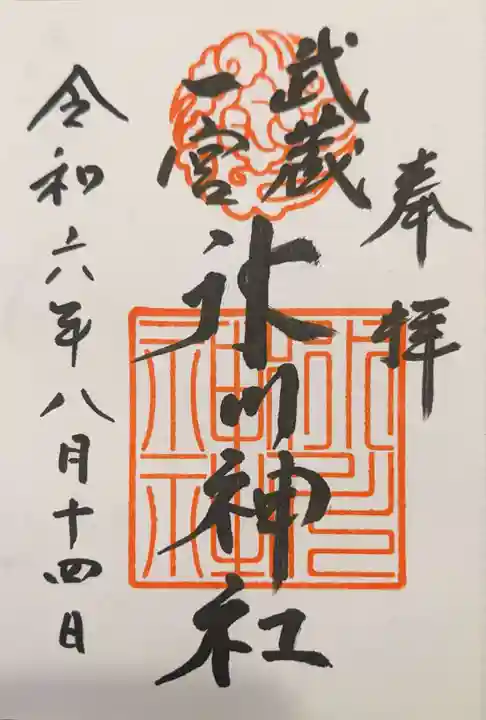 奉拝
武蔵
一宮
氷川神社
令和六年八月十四日
氷川神社